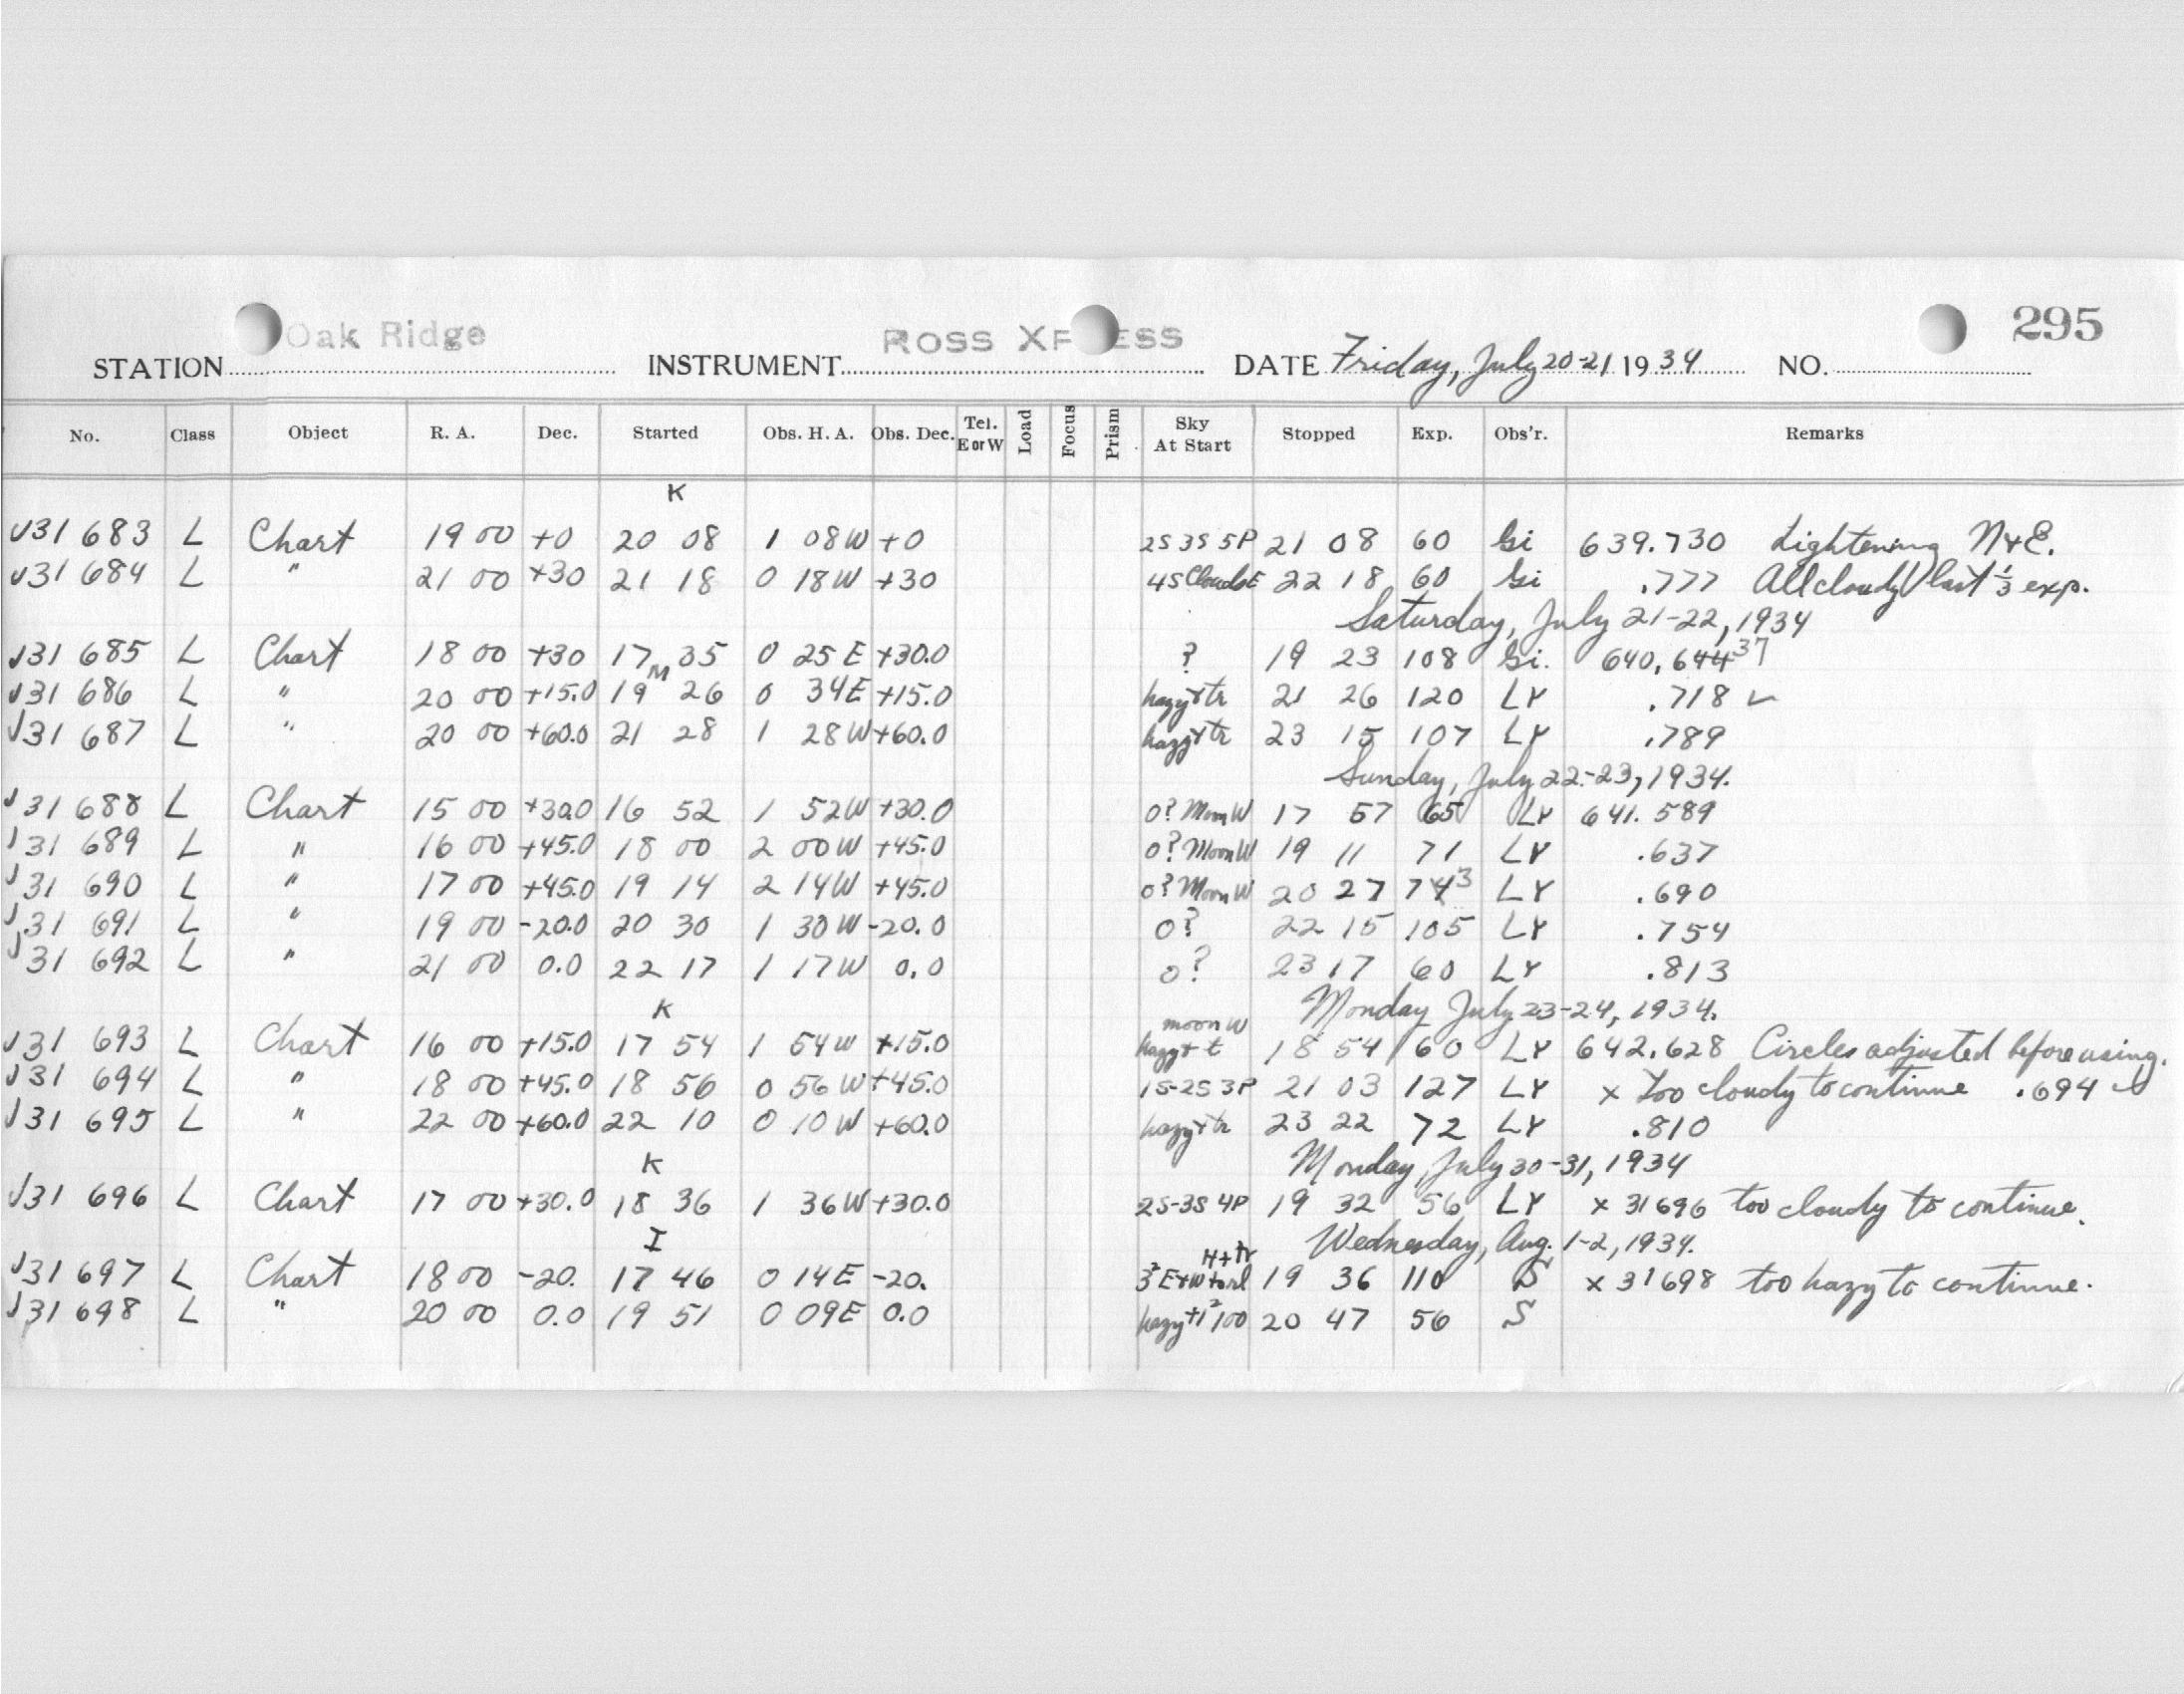 Oak Ridge ROSS XPRESS 295
STATION INSTRUMENT DATE Friday, July 20-21 1934 NO.
No. Class Object R. A. Dec. Started Obs. H. A. Obs. Dec. Tel. E or W Load Focus Prism Sky At Start Stopped Exp. Obs'r. Remarks
K
√31 683 L Chart 19 00 +0 20 08 1 08W +0 2S 3S 5P 21 08 60 Gi 639.730 Lightening N+E.
√31 684 L " 21 00 +30 21 18 0 18W +30 4S Clouds E 22 18 60 Gi .777 All cloudy last 1/3 exp.
Saturday, July 21-22, 1934
√31 685 L Chart 18 00 +30 17 35 0 25 E +30.0 ? 19 23 108 Gi. 640.644 37
M
√31 686 L " 20 00 +15.0 19 26 0 34E +15.0 hazy+tr 21 26 120 LY .718 ✓
√31 687 L " 20 00 +60.0 21 28 1 28W +60.0 hazy+tr 23 15 107 LY .789
Sunday, July 22-23, 1934.
√31 688 L Chart 15 00 +30.0 16 52 1 52W +30.0 0? Moon W 17 57 65 LY 641.589
√31 689 L " 16 00 +45.0 18 00 2 00W +45.0 0? Moon W 19 11 71 LY .637
√31 690 L " 17 00 +45.0 19 14 2 14W +45.0 0? Moon W 20 27 74 3 LY .690
√31 691 L " 19 00 -20.0 20 30 1 30W -20.0 0? 22 15 105 LY .754
√31 692 L " 21 00 0.0 22 17 1 17W 0.0 0? 23 17 60 LY .813
K Monday July 23-24, 1934.
moon W
√31 693 L Chart 16 00 +15.0 17 54 1 54W +15.0 hazy+t 18 54 60 LY 642.628 Circles adjusted before using.
√31 694 L " 18 00 +45.0 18 56 0 56W +45.0 1S-2S 3P 21 03 127 LY x Too cloudy to continue .694 ✓
√31 695 L " 22 00 +60.0 22 10 0 10W +60.0 hazy+tr 23 22 72 LY .810
K Monday, July 30-31, 1934
√31 696 L Chart 17 00 +30.0 18 36 1 36W +30.0 2S-3S 4P 19 32 56 LY x 31696 too cloudy to continue.
I Wednesday, Aug. 1-2, 1934.
H+tr
√31 697 L Chart 18 00 -20. 17 46 0 14E -20. 19 36 110 S x 31698 too hazy to continue.
√31 698 L " 20 00 0.0 19 51 0 09E 0.0 20 47 56 S